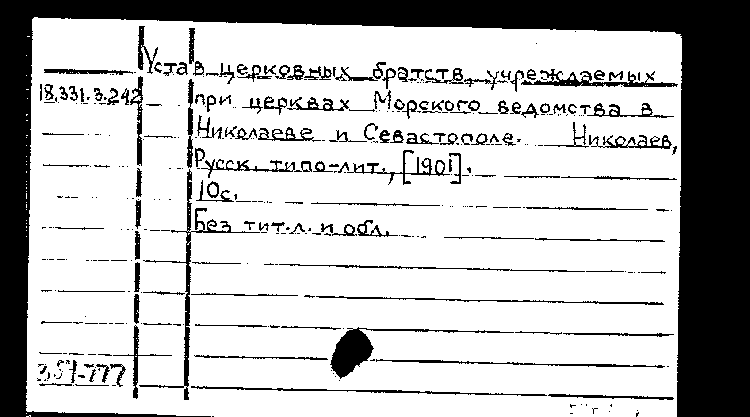 Устав церковных братств, учреждаемых
18.331.3.242 при церквах Морского ведомства в
Николаеве и Севастополе. Николаев,
Русск. типо-лит., [1901].
10с.
Без тит.л. и обл.